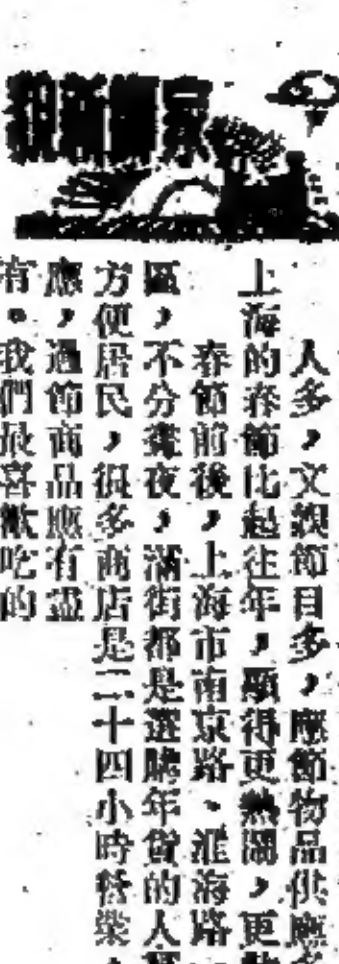 人多，文娛節目多，應節物品供應
上海的春節比起往年，顯得更熱鬧，更
春節前後，上海市南京路、淮海路
區，不分晝夜，滿街都是選購年貨的人
方便居民，很多商店是二十四小時營業，
應，過節商品應有盡
有。我們最喜歡吃的